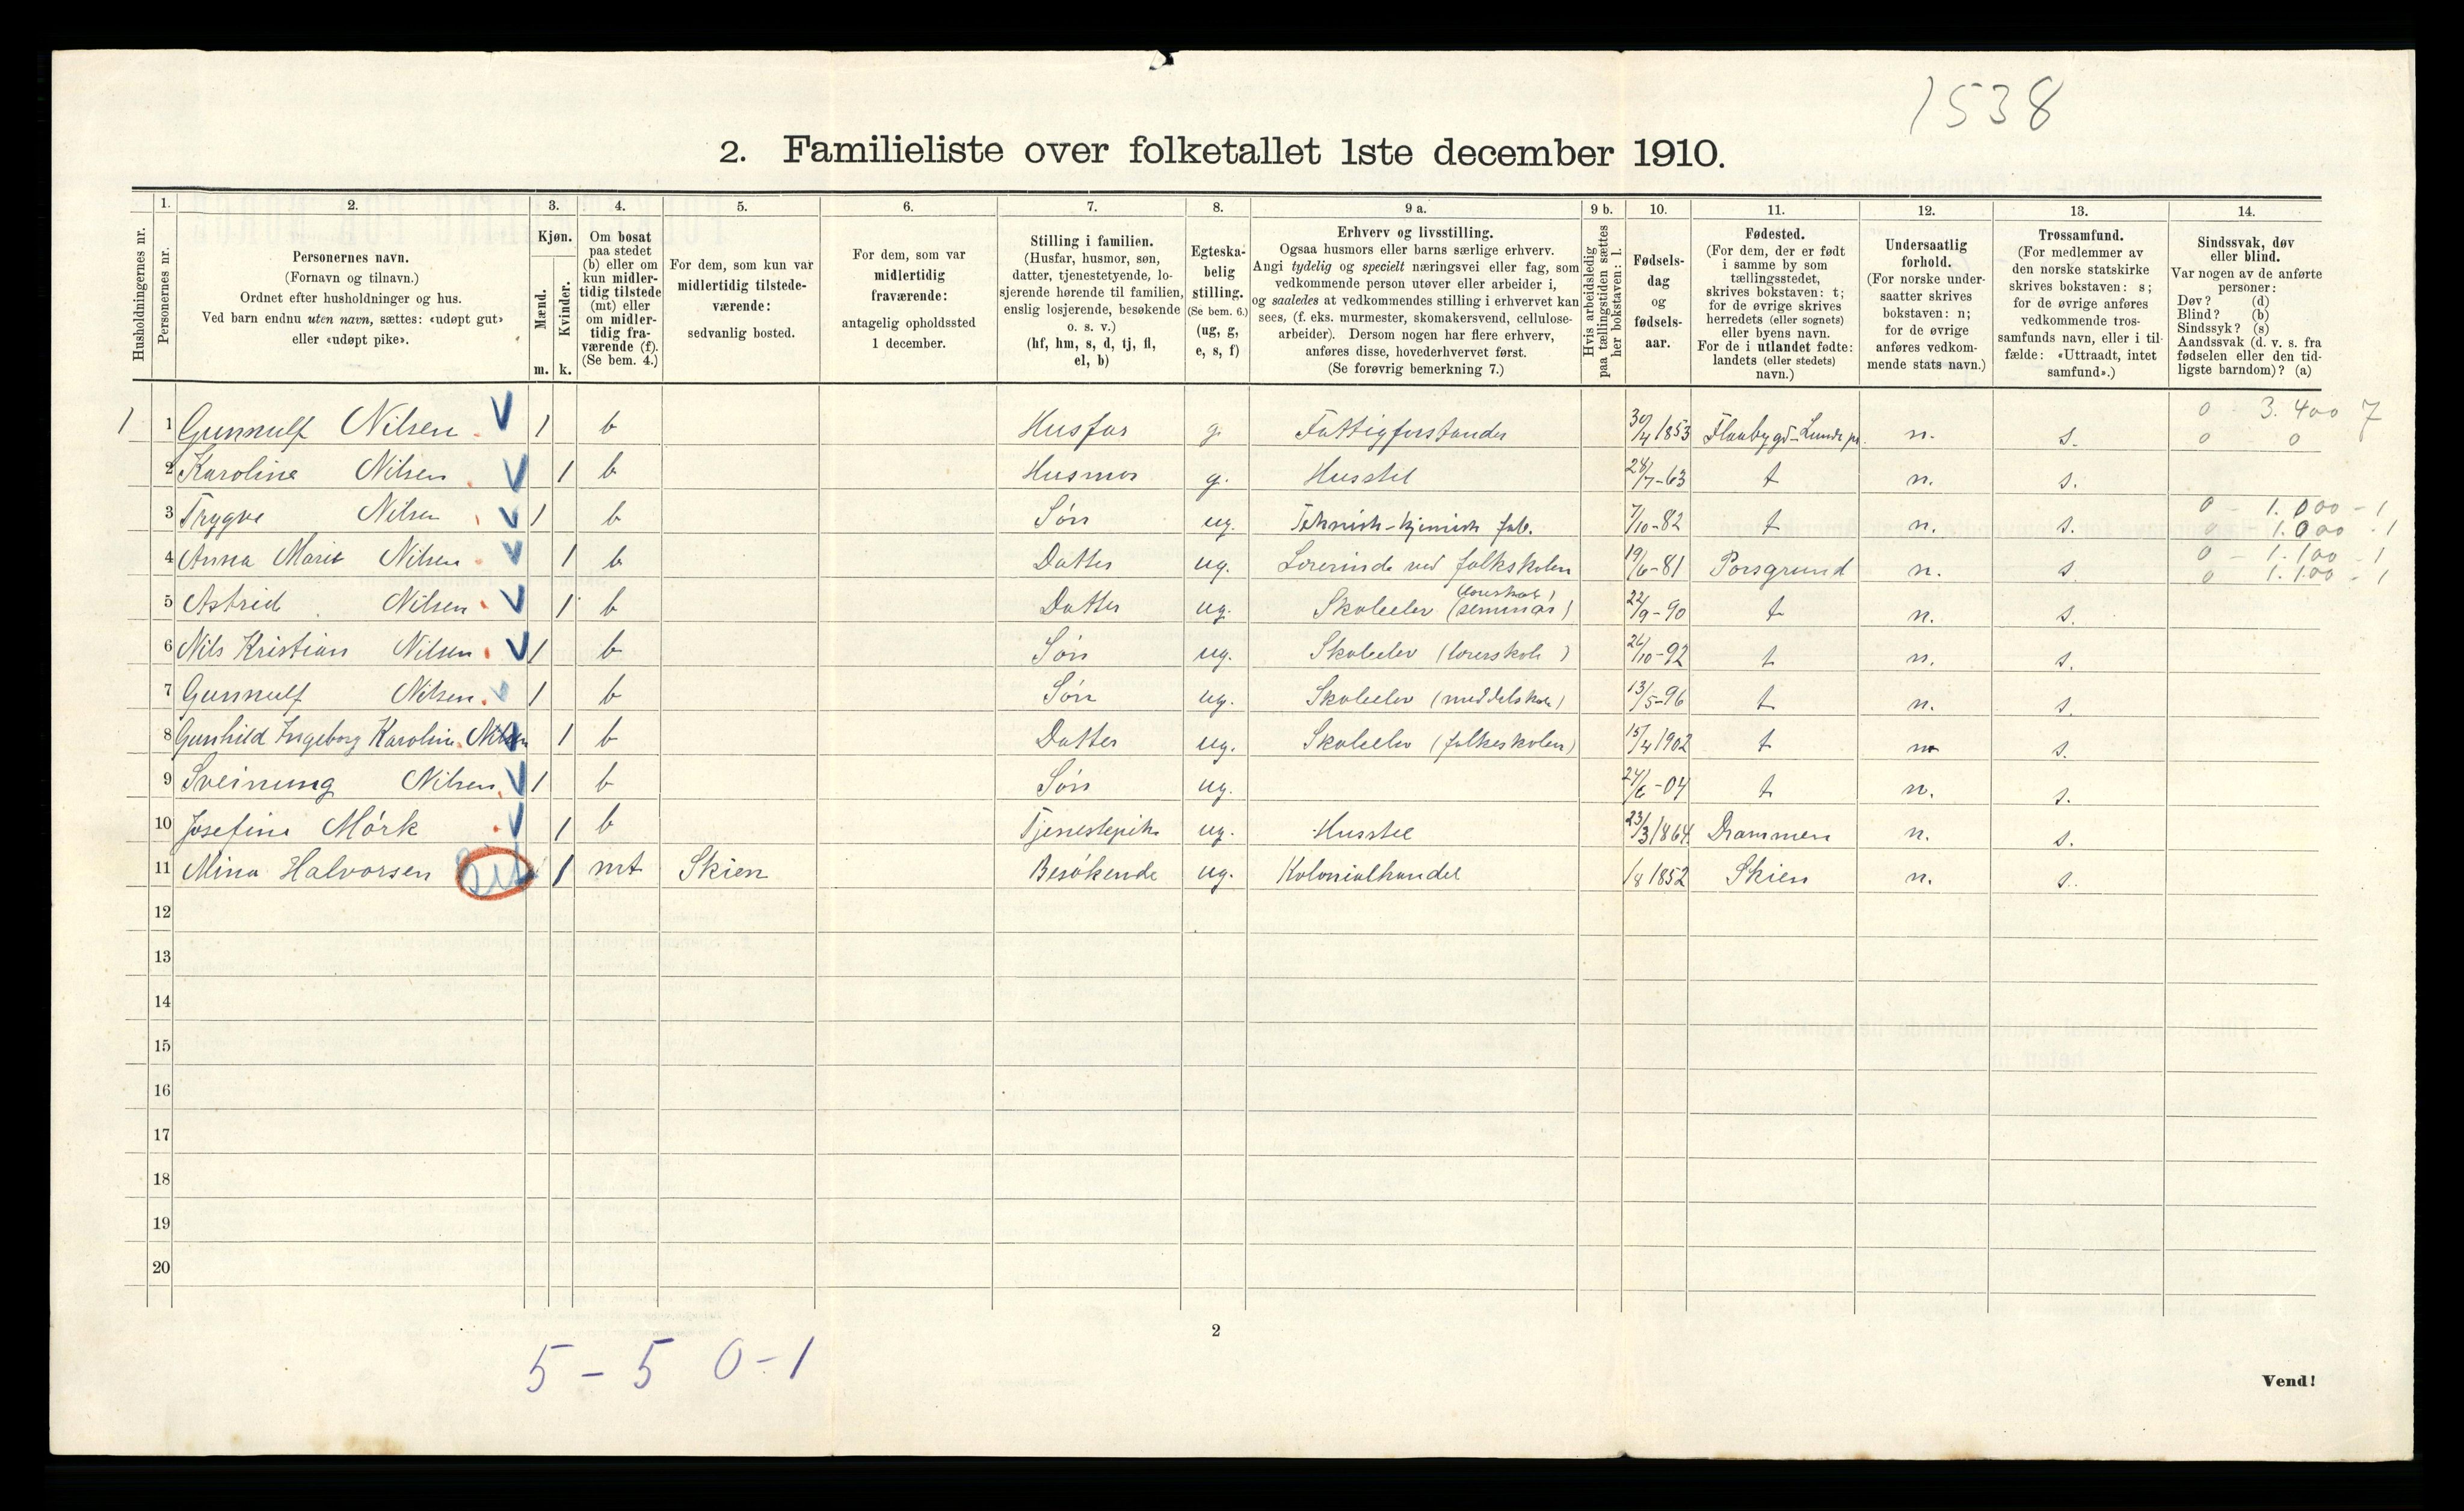 1538
2. Familieliste over folketallet 1ste december 1910.
Husholdningernes nr.
1.
Personernes nr.
2.
Personernes navn.
(Fornavn og tilnavn.)
Ordnet efter husholdninger og hus.
Ved barn endnu uten navn, sættes: «udøpt gut»
eller «udøpt pike».
3.
Kjøn.
Mænd.
Kvinder.
m. k.
4.
Om bosat
paa stedet
(b) eller om
kun midler-
tidig tilstede
(mt) eller
om midler-
tidig fra-
værende (f).
(Se bem. 4.)
5.
For dem, som kun var
midlertidig tilstede-
værende:
sedvanlig bosted.
6.
For dem, som var
midlertidig
fraværende:
antagelig opholdssted
1 december.
7.
Stilling i familien.
(Husfar, husmor, søn,
datter, tjenestetyende, lo-
sjerende hørende til familien,
enslig losjerende, besøkende
o. s. v.)
(hf, hm, s, d, tj, fl,
el, b)
8.
Egteska-
belig
stilling.
(Se bem. 6.)
(ug, g,
e, s, f)
9 a.
Erhverv og livsstilling.
Ogsaa husmors eller barns særlige erhverv.
Angi tydelig og specielt næringsvei eller fag, som
vedkommende person utøver eller arbeider i,
og saaledes at vedkommendes stilling i erhvervet kan
sees, (f. eks. murmester, skomakersvend, cellulose-
arbeider). Dersom nogen har flere erhverv,
anføres disse, hovederhvervet først.
(Se forøvrig bemerkning 7.)
9 b.
Hvis arbeidsledig
paa tællingstiden sættes
her bokstaven: l.
10.
Fødsels-
dag
og
fødsels-
aar.
11.
Fødested.
(For dem, der er født
i samme by som
tællingsstedet,
skrives bokstaven: t;
for de øvrige skrives
herredets (eller sognets)
eller byens navn.
For de i utlandet fødte:
landets (eller stedets)
navn.)
12.
Undersaatlig
forhold.
(For norske under-
saatter skrives
bokstaven: n;
for de øvrige
anføres vedkom-
mende stats navn.)
13.
Trossamfund.
(For medlemmer av
den norske statskirke
skrives bokstaven: s;
for de øvrige anføres
vedkommende tros-
samfunds navn, eller i til-
fælde: «Uttraadt, intet
samfund».)
14.
Sindssvak, døv
eller blind.
Var nogen av de anførte
personer:
Døv? (d)
Blind? (b)
Sindssyk? (s)
Aandssvak (d. v. s. fra
fødselen eller den tid-
ligste barndom)? (a)
1 1 Gunnulf Nilsen. V 1 b Husfar g. Fattigforstander 30/4 1853 Flaabygd-Lunde n. s. 0 3.400 7
0 0
2 Karoline Nilsen. V 1 b Husmor g. Husstel 28/7-63 t n. s.
3 Trygve Nilsen V 1 b Søn ug. Teknisk-kjemisk fab. 7/10-82 t n. s. 0 - 1.000 - 1
0 1.000 - 1
4 Anna Marie Nilsen V 1 b Datter ug. Lærerinde ved folkskolen 19/6-81 Porsgrund n. s. 0 - 1.100 - 1
0 1.100 - 1
5 Astrid Nilsen. V 1 b Datter ug. Skoleelev (seminar) 22/9-90 t n. s.
6 Nils Kristian Nilsen. V 1 b Søn ug. Skoleelev (lærerskole) 26/10-92 t n. s.
7 Gunnulf Nilsen. V 1 b Søn ug. Skoleelev (middelskole) 13/5-96 t n. s.
8 Gunhild Ingeborg Karoline Nilsen 1 b Datter ug. Skoleelev (folkeskolen) 15/4 1902 t n s.
9 Sveinung Nilsen V 1 b Søn ug. 24/6-04 t n. s.
10 Josefine Mörk V 1 b Tjenestepike ug. Husstel 23/3 1864 Drammen n. s.
11 Mina Halvorsen 1 mt Skien Besøkende ug. Kolonialhandel /8 1852 Skien n. s.
12
13
14
15
16
17
18
19
20
2
5 - 5 0 - 1
Vend!